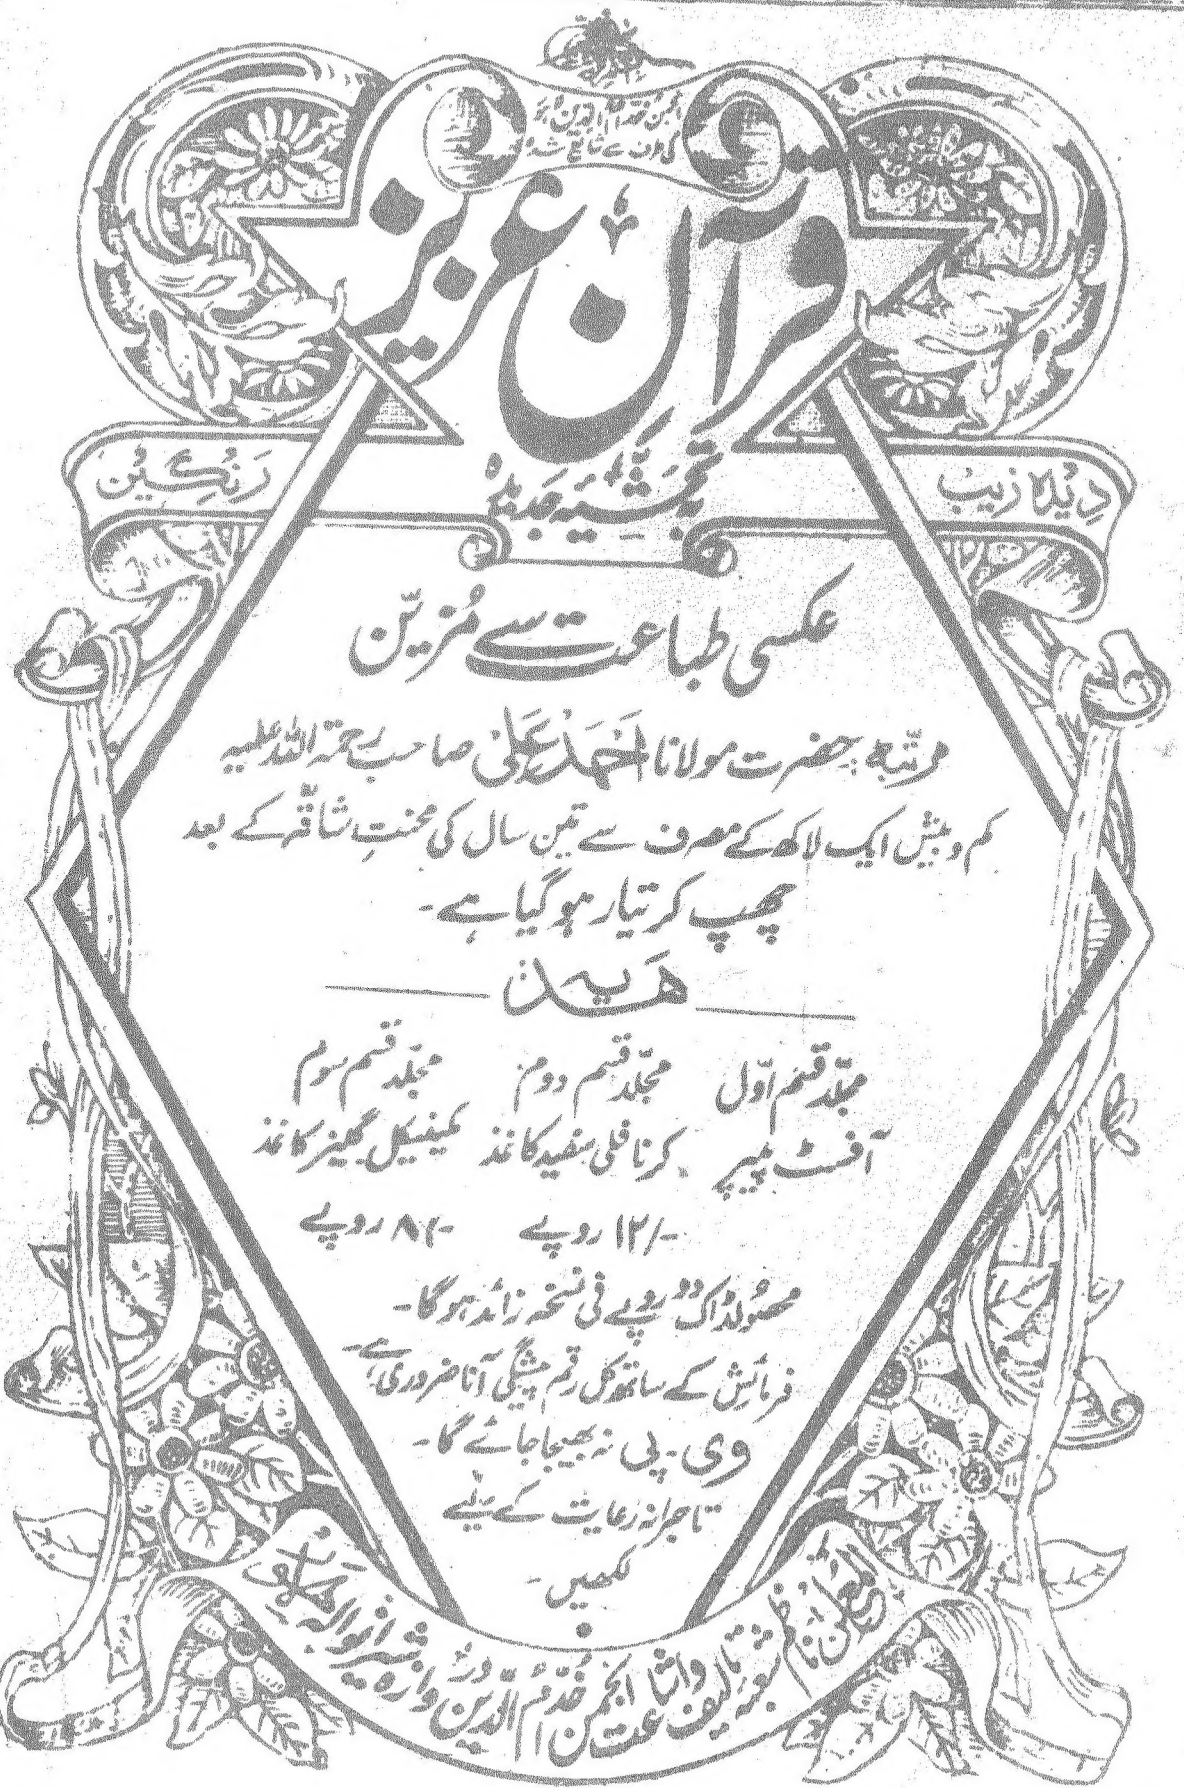 انجمن خدام الدین لاہور
کی طرف سے شائع شدہ
قرآن عزیز
دیدہ زیب
رنگین
بہ تحشیۂ جدیدہ
عکسی طباعت سے مُزیّن
مرتّبہ حضرت مولانا احمد علی صاحب رحمۃ اللہ علیہ
کم و بیش ایک لاکھ کے مصرف سے تین سال کی محنتِ شاقّہ کے بعد
چھپ کر تیار ہو گیا ہے۔
ھدیہ
مجلّد قسم اوّل مجلّد قسم دوم مجلّد قسم سوم
آفسٹ پیپر کرنافلی سفید کاغذ کیمیکل گلیز کاغذ
۱۲/- روپے ۸/- روپے
محصولڈاک دو روپے فی نسخہ زائد ہوگا۔
فرمائش کے ساتھ کل رقم پیشگی آنا ضروری ہے۔
وی۔ پی نہ بھیجا جائے گا۔
تاجرانہ رعایت کے لئے
لکھیں۔
المعلن ناظم شعبہ تالیف و اشاعت انجمن خدام الدین دروازہ شیرانوالہ لاہور